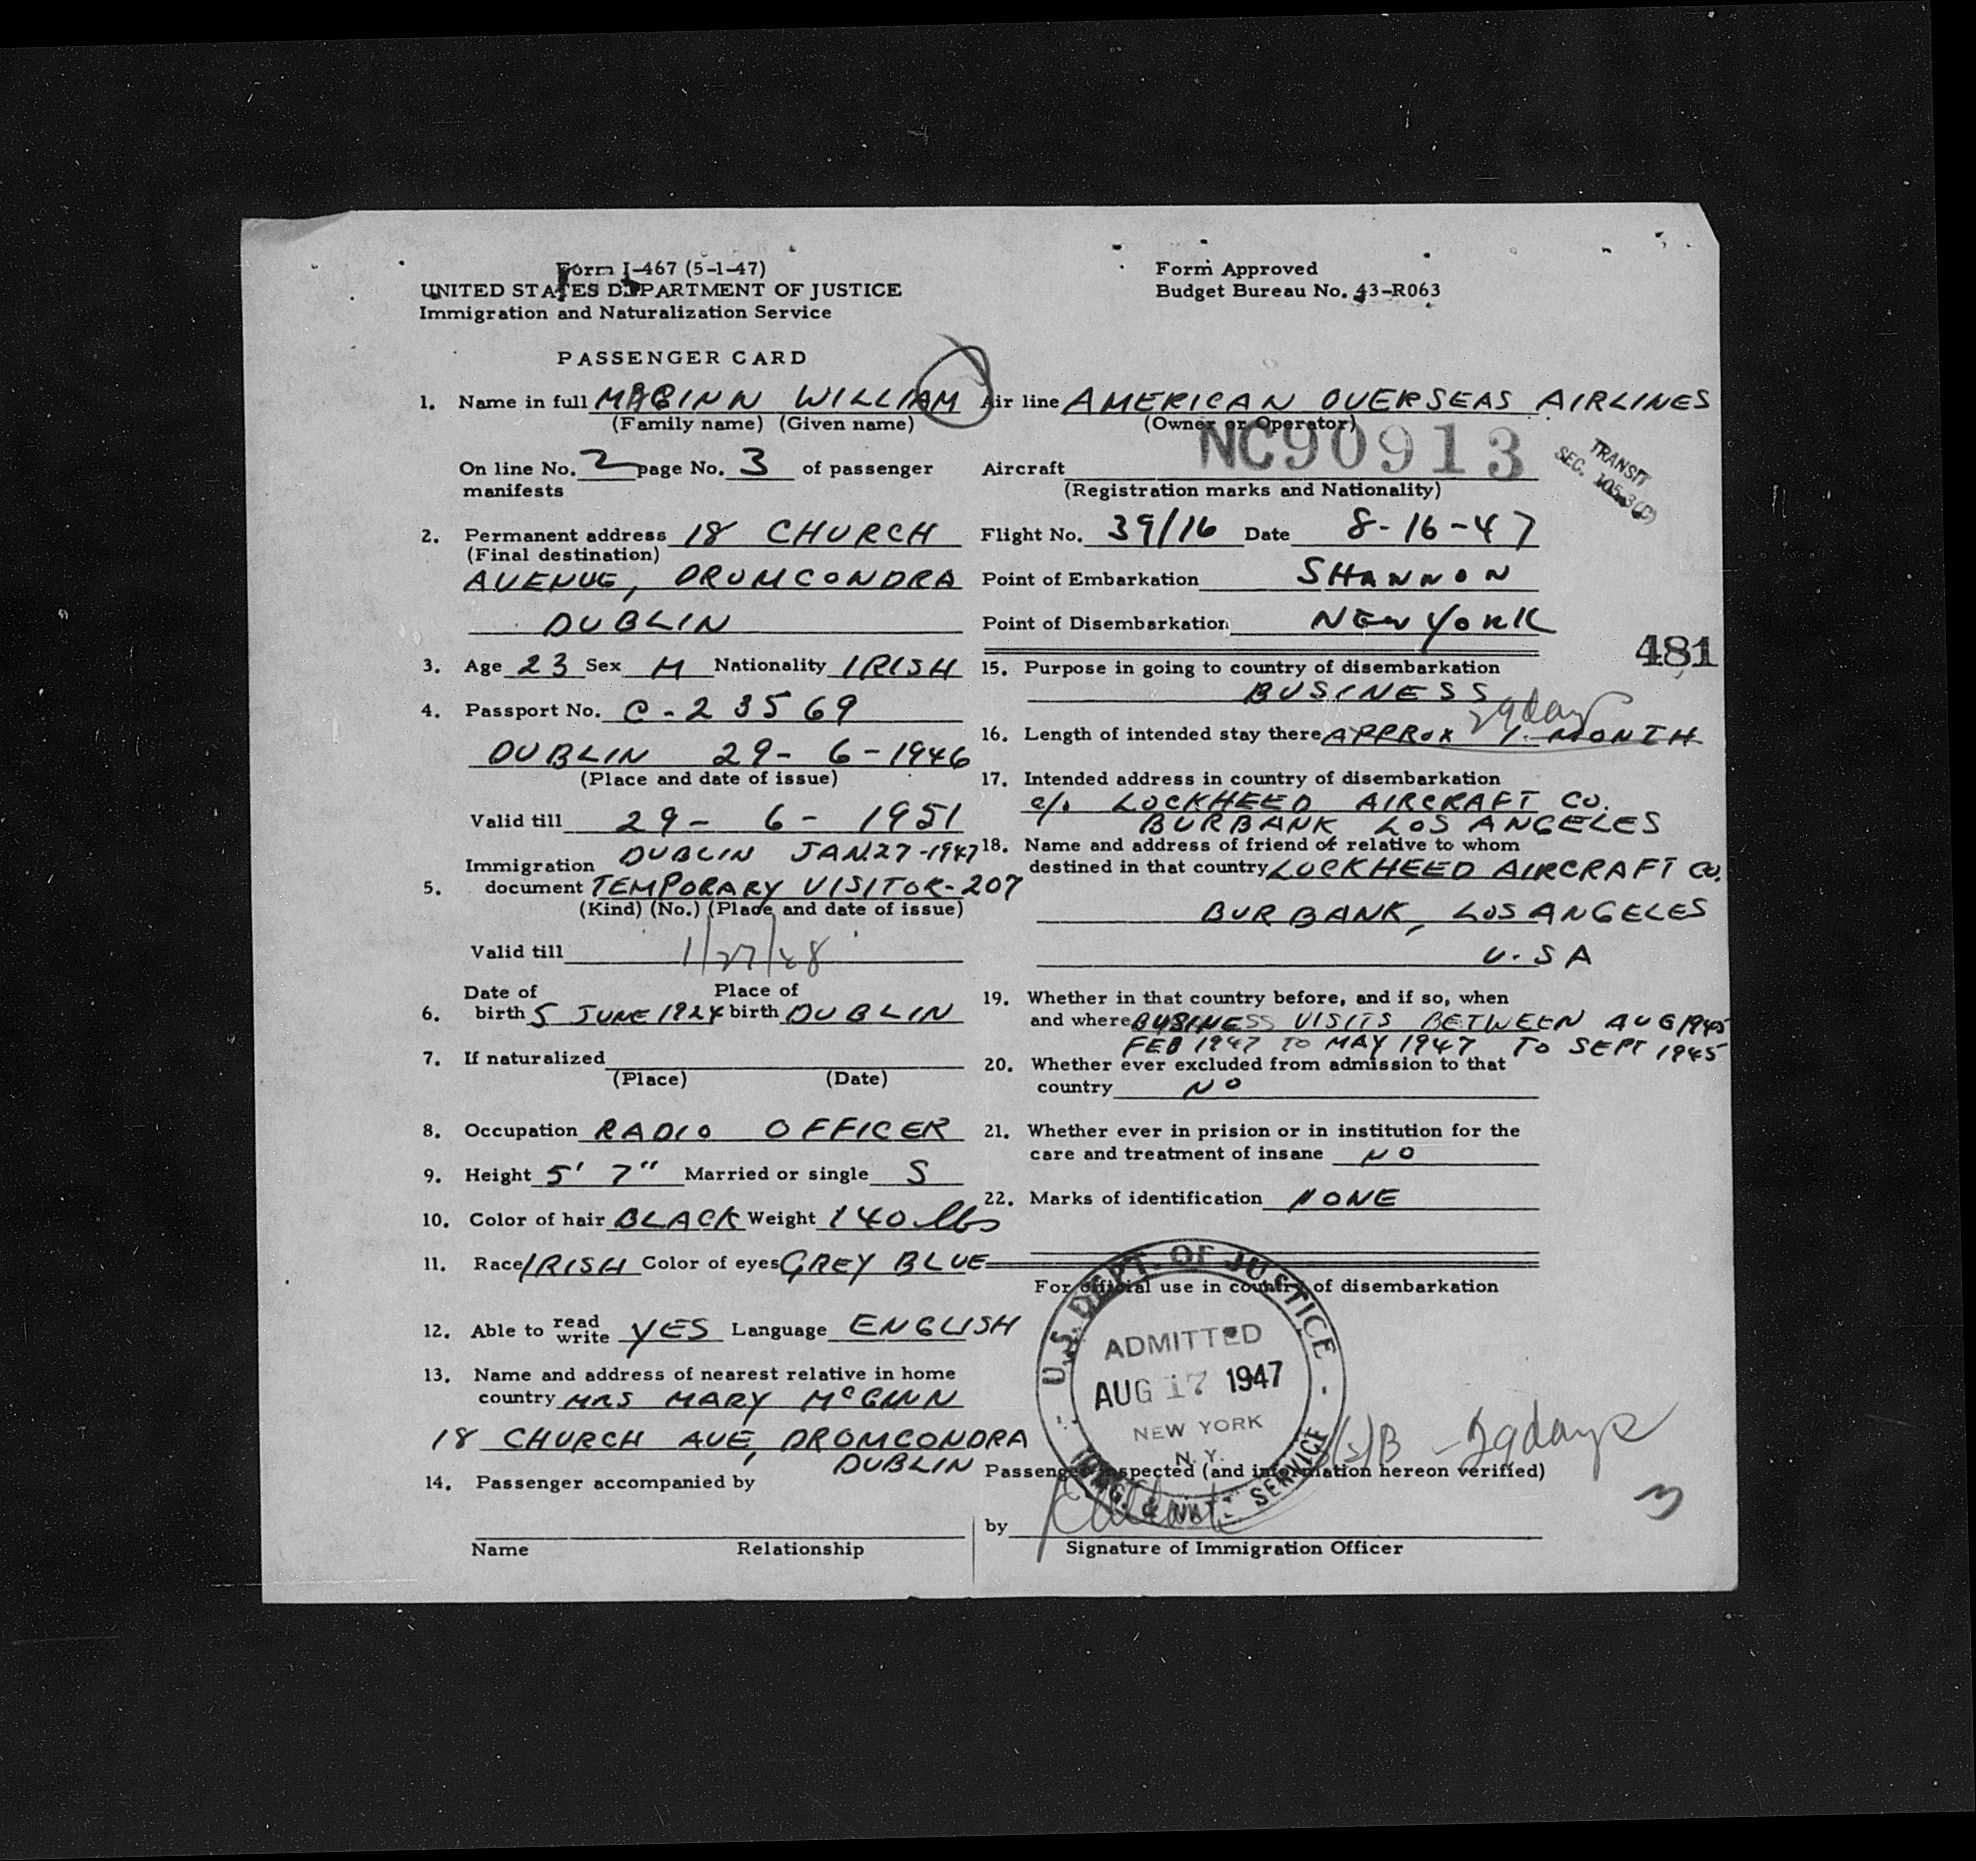 Form I-467 (5-1-47)
UNITED STATES DEPARTMENT OF JUSTICE
Immigration and Naturalization Service
PASSENGER CARD
Form Approved
Budget Bureau No. 43-R063
1. Name in full WILLIAM
(Family name) (Given name)
On line No. 2 page No. 3 of passenger
manifests
2. Permanent address 18 CHURCH
(Final destination)
AVENUE, DRUMCONDRA
DUBLIN
3. Age 23 Sex M Nationality IRISH
4. Passport No. C-23569
DUBLIN 29-6-1946
(Place and date of issue)
Valid till 29-6-1951
DUBLIN JAN.27-1947
Immigration
5. document TEMPORARY VISITOR-207
(Kind) (No.) (Place and date of issue)
Valid till 1/27/48
Date of Place of
6. birth 5 JUNE 1924 birth DUBLIN
7. If naturalized
(Place) (Date)
8. Occupation RADIO OFFICER
9. Height 5' 7" Married or single S
10. Color of hair BLACK Weight 140 lbs
11. Race IRISH Color of eyes GREY BLUE
12. Able to read write YES Language ENGLISH
13. Name and address of nearest relative in home
country MRS MARY McGINN
18 CHURCH AVE, DROMCONDRA
DUBLIN
14. Passenger accompanied by
Name Relationship
Air line AMERICAN OVERSEAS AIRLINES
(Owner or Operator)
Aircraft NC90913
(Registration marks and Nationality)
TRANSIT
SEC. 105.3(C)
Flight No. 39/16 Date 8-16-47
Point of Embarkation SHANNON
Point of Disembarkation NEW YORK
481
15. Purpose in going to country of disembarkation
BUSINESS
29 days
16. Length of intended stay there APPROX 1 MONTH
17. Intended address in country of disembarkation
c/o LOCKHEED AIRCRAFT CO.
BURBANK LOS ANGELES
18. Name and address of friend of relative to whom
destined in that country LOCKHEED AIRCRAFT CO.
BURBANK, LOS ANGELES
U.SA
19. Whether in that country before, and if so, when
and where BUSINESS VISITS BETWEEN AUG 1945
FEB 1947 TO MAY 1947 TO SEPT 1945
20. Whether ever excluded from admission to that
country NO
21. Whether ever in prision or in institution for the
care and treatment of insane NO
22. Marks of identification NONE
For official use in country of disembarkation
U.S. DEPT. OF JUSTICE
ADMITTED
AUG 17 1947
NEW YORK
N.Y.
IMMG. & NAT'Z SERVICE
29 days
Passenger inspected (and information hereon verified)
3
by
Signature of Immigration Officer